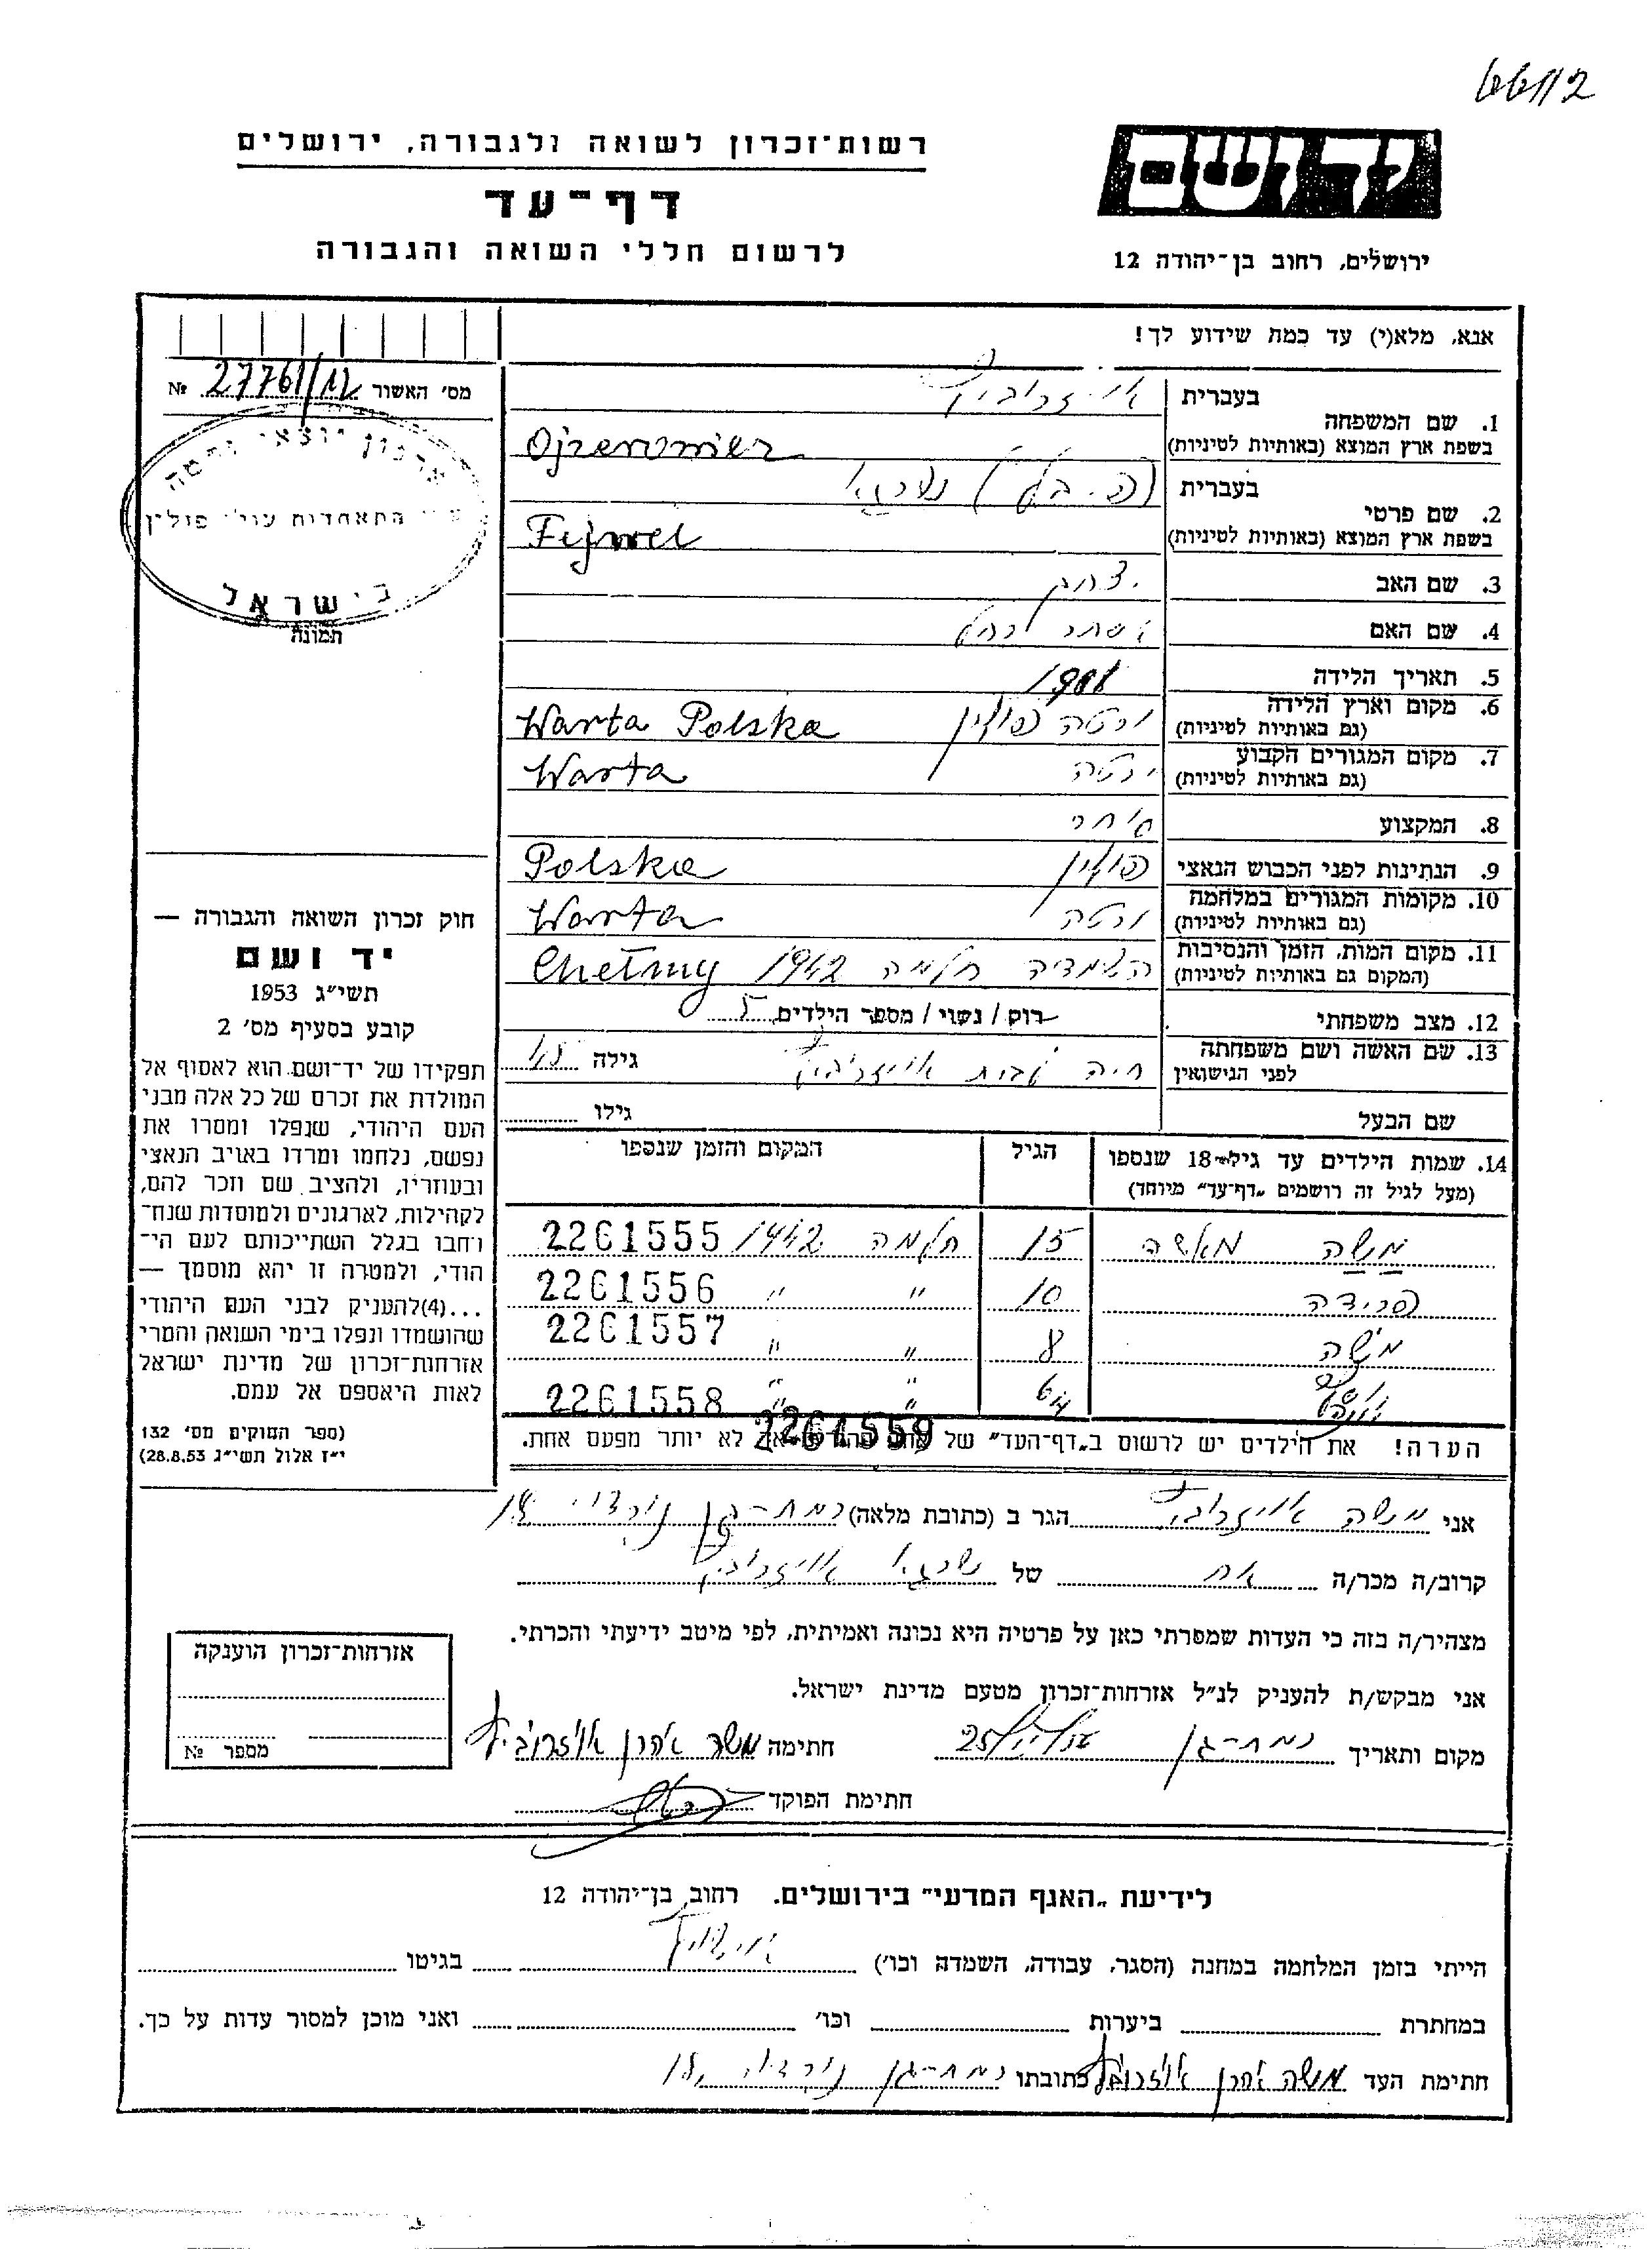 66112
רשות־זכרון לשואה ולגבורה, ירושלים
דף־עד
לרשום חללי השואה והגבורה
יד ושם
ירושלים, רחוב בן־יהודה 12
אנא, מלא(י) עד כמה שידוע לך!
מס׳ האשור 27761/12 №
ארגון יוצאי ורטה
ע״י התאחדות עולי פולין
בישראל
תמונה
1. שם המשפחה
בעברית
בשפת ארץ המוצא (באותיות לטיניות) Ojzerowicz
2. שם פרטי
בעברית
בשפת ארץ המוצא (באותיות לטיניות) Fejwel
3. שם האב יצחק
4. שם האם אסתר רחל
5. תאריך הלידה
6. מקום וארץ הלידה ורטה פולין Warta Polska
(גם באותיות לטיניות)
7. מקום המגורים הקבוע ורטה Warta
(גם באותיות לטיניות)
8. המקצוע סוחר
9. הנתינות לפני הכבוש הנאצי פולין Polska
10. מקומות המגורים במלחמה ורטה Warta
(גם באותיות לטיניות)
11. מקום המות, הזמן והנסיבות השמדה חלמה 1942 Chełmy
(המקום גם באותיות לטיניות)
12. מצב משפחתי רוק / נשוי / מספר הילדים 5
13. שם האשה ושם משפחתה חיה לבית אויזרוביץ גילה 45
לפני הנישואין
שם הבעל גילו
14. שמות הילדים עד גיל־18 שנספו הגיל המקום והזמן שנספו
(מעל לגיל זה רושמים „דף־עד״ מיוחד)
משה 15 חלמה 1942 2261555
פרידה 10 " " 2261556
8 " " 2261557
" " 2261558
2261559
הערה! את הילדים יש לרשום ב„דף־העד״ של אחד ההורים אך לא יותר מפעם אחת.
חוק זכרון השואה והגבורה —
יד ושם
תשי״ג 1953
קובע בסעיף מס׳ 2
תפקידו של יד־ושם הוא לאסוף אל
המולדת את זכרם של כל אלה מבני
העם היהודי, שנפלו ומסרו את
נפשם, נלחמו ומרדו באויב הנאצי
ובעוזריו, ולהציב שם וזכר להם,
לקהילות, לארגונים ולמוסדות שנח־
רבו בגלל השתייכותם לעם הי־
הודי, ולמטרה זו יהא מוסמך —
...(4)להעניק לבני העם היהודי
שהושמדו ונפלו בימי השואה והמרי
אזרחות־זכרון של מדינת ישראל
לאות היאספם אל עמם.
(ספר החוקים מס׳ 132
י״ז אלול תשי״ג 28.8.53)
אני משה אויזרוביץ הגר ב (כתובת מלאה) רמת־גן
קרוב/ה מכר/ה אח של שרגא אויזרוביץ
מצהיר/ה בזה כי העדות שמסרתי כאן על פרטיה היא נכונה ואמיתית, לפי מיטב ידיעתי והכרתי.
אני מבקש/ת להעניק לנ״ל אזרחות־זכרון מטעם מדינת ישראל.
מקום ותאריך רמת־גן חתימה משה אהרן אויזרוביץ
חתימת הפוקד
אזרחות־זכרון הוענקה
מספר №
לידיעת „האגף המדעי״ בירושלים. רחוב בן־יהודה 12
הייתי בזמן המלחמה במחנה (הסגר, עבודה, השמדה וכו׳) בגיטו
במחתרת ביערות וכו׳ ואני מוכן למסור עדות על כך.
חתימת העד משה אהרן אויזרוביץ כתובתו רמת־גן